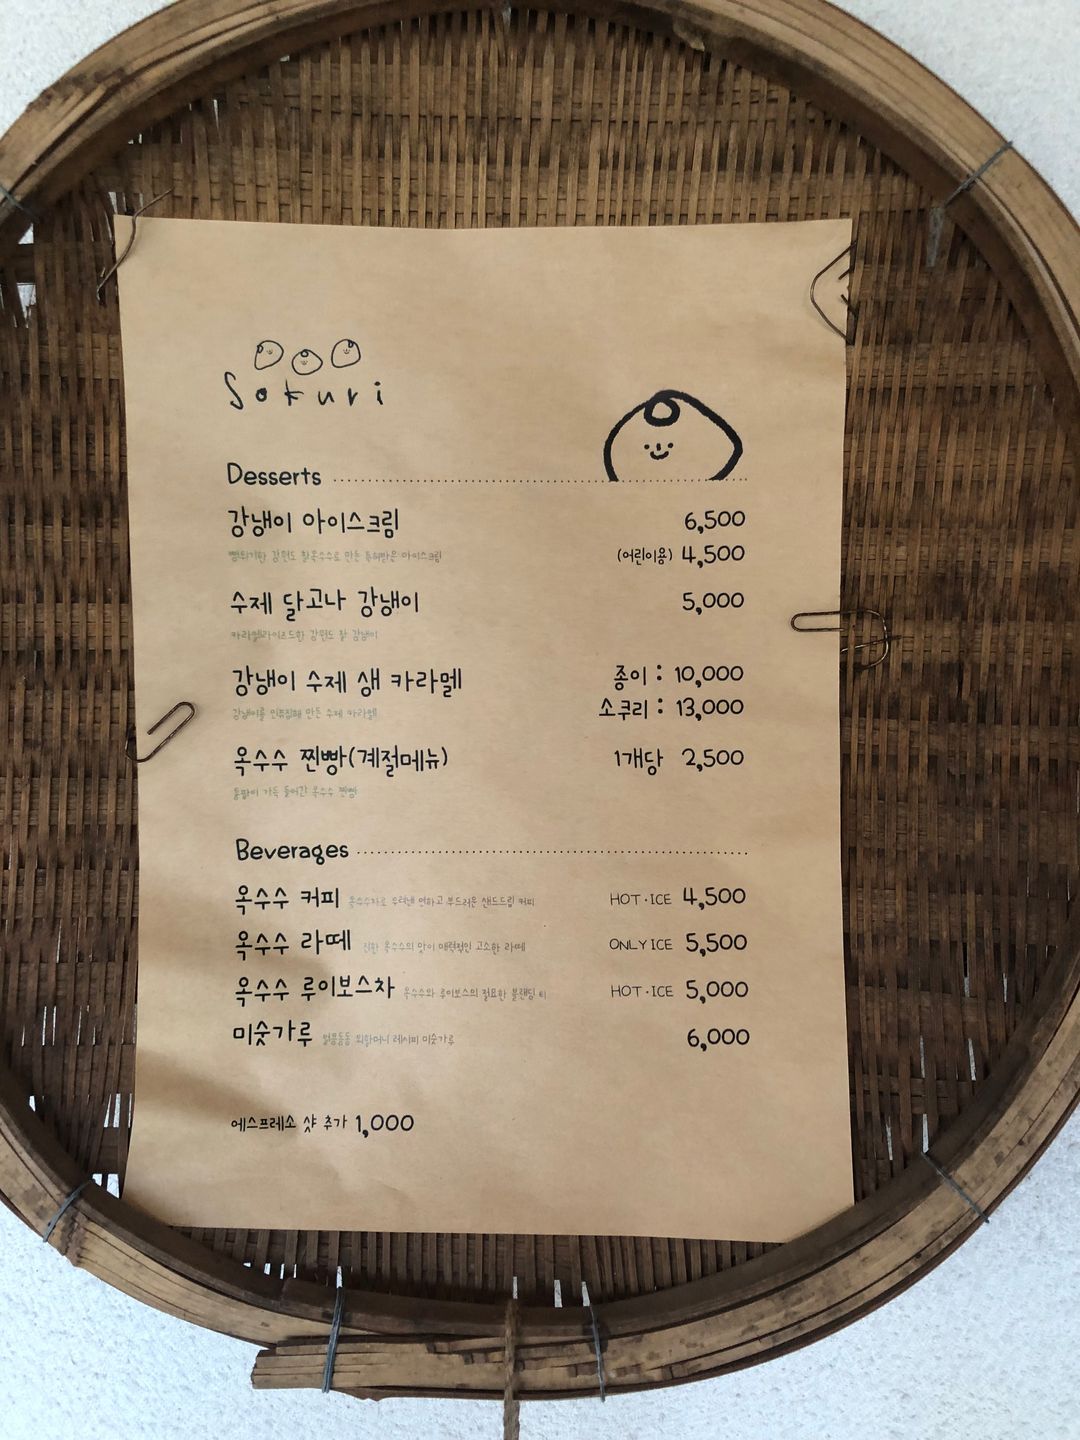 Sokuri
Desserts
강냉이 아이스크림 6,500
뻥튀기한 강원도 찰옥수수로 만든 특허받은 아이스크림 (어린이용) 4,500
수제 달고나 강냉이 5,000
카라멜라이즈드한 강원도 찰 강냉이
강냉이 수제 생 카라멜 종이 : 10,000
강냉이를 만든 수제 카라멜 소쿠리 : 13,000
옥수수 찐빵(계절메뉴) 1개당 2,500
통팥이 가득 들어간 옥수수 찐빵
Beverages
옥수수 커피 옥수수차로 우려낸 연하고 부드러운 핸드드립 커피 HOT·ICE 4,500
옥수수 라떼 진한 옥수수의 맛이 매력적인 고소한 라떼 ONLY ICE 5,500
옥수수 루이보스차 옥수수와 루이보스의 절묘한 블랜딩 티 HOT·ICE 5,000
미숫가루 외할머니 레시피 미숫가루 6,000
에스프레소 샷 추가 1,000